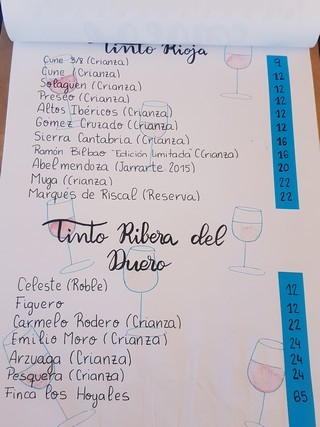 Tinto Rioja
Cune 3/8 (Crianza) 9
Cune (Crianza) 12
Solaguen (Crianza) 12
Preseo (Crianza) 12
Altos Ibéricos (Crianza) 12
Gomez Cruzado (Crianza) 12
Sierra Cantabria (Crianza) 16
Ramón Bilbao "Edición limitada" (Crianza) 16
Abel mendoza (Jarrarte 2015) 20
Muga (Crianza) 22
Marqués de Riscal (Reserva) 22
Tinto Ribera del
Duero
Celeste (Roble) 12
Figuero 12
Carmelo Rodero (Crianza) 22
Emilio Moro (Crianza) 24
Arzuaga (Crianza) 24
Pesquera (Crianza) 24
Finca los Hoyales 65